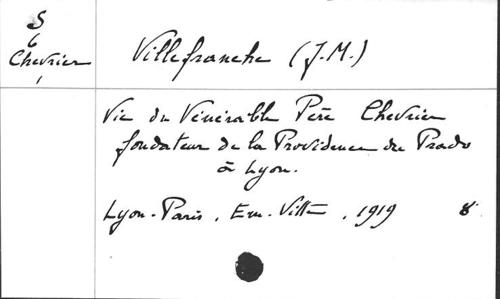 S
6
Chevrier
1
Villefranche (J.M.)
Vie du Vénérable Père Chevrier
fondateur de la Providence du Prado
à Lyon.
Lyon-Paris, Em. Vitte, 1919 8